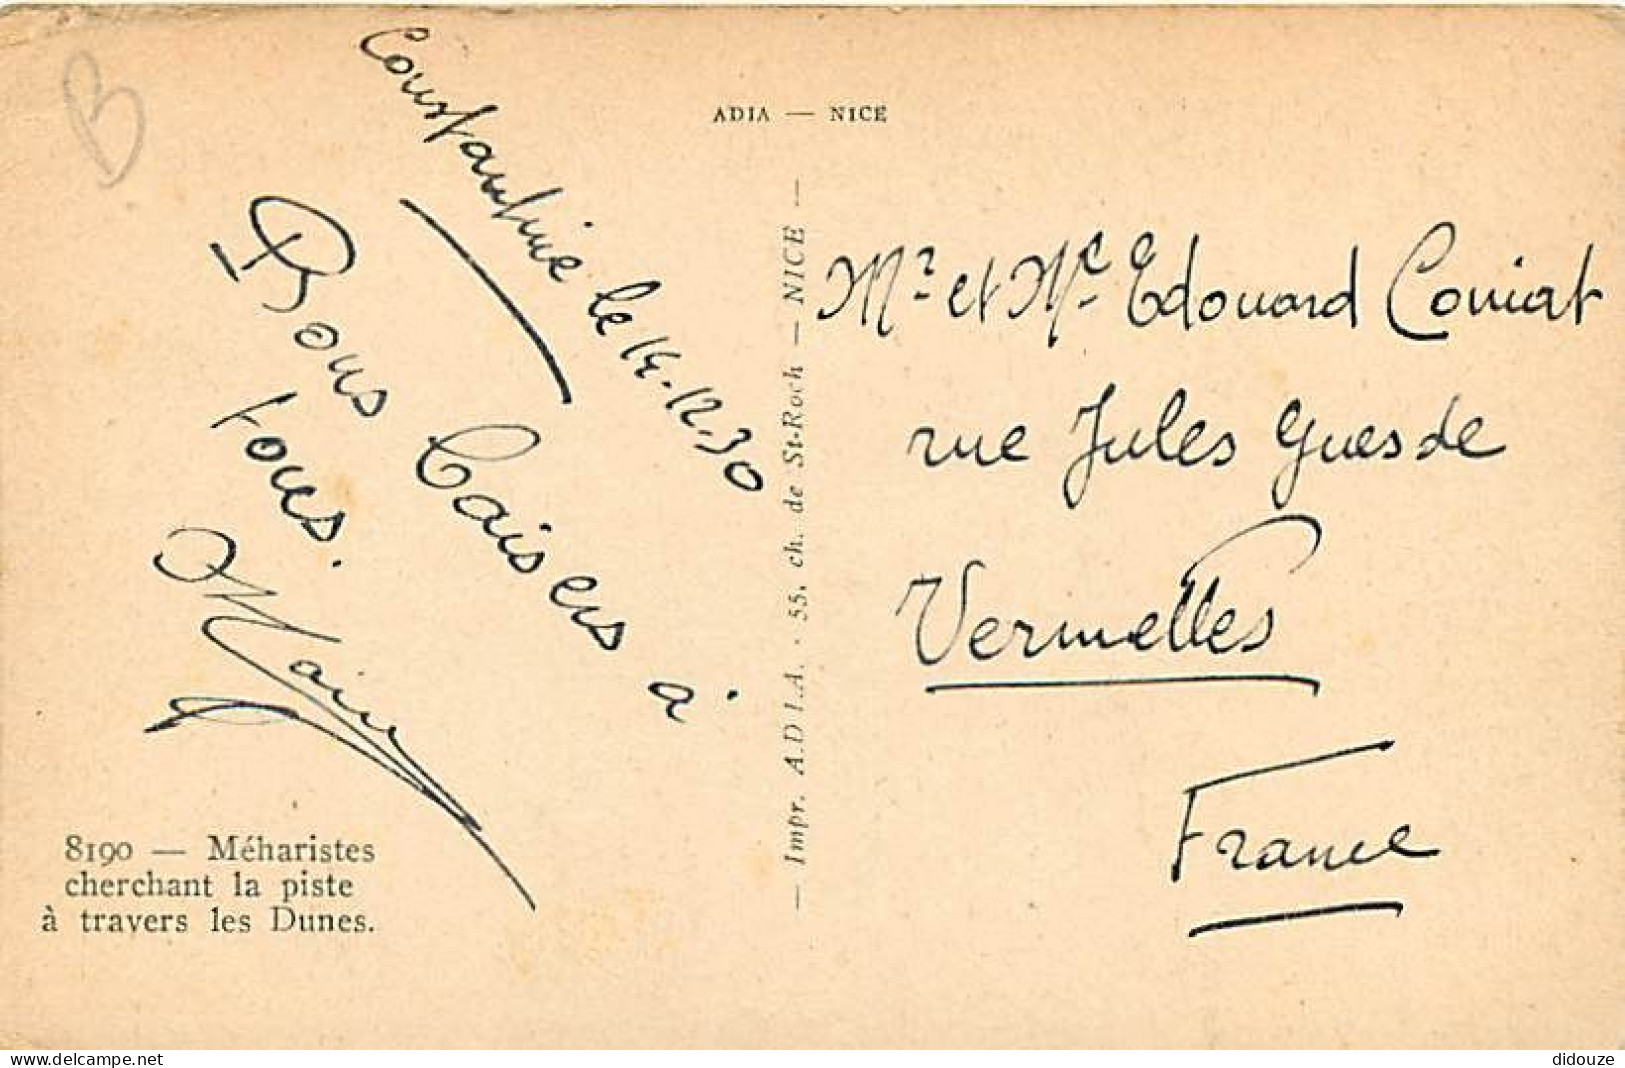 Constantine le 14.12.30
Bons baisers à
tous.
ADIA — NICE
— Impr. A.D.I.A. - 55, ch. de St-Roch — NICE —
Mr et Me Edouard Comiat
rue Jules Guesde
Vermelles
France
8190 — Méharistes
cherchant la piste
à travers les Dunes.
www.delcampe.net
didouze